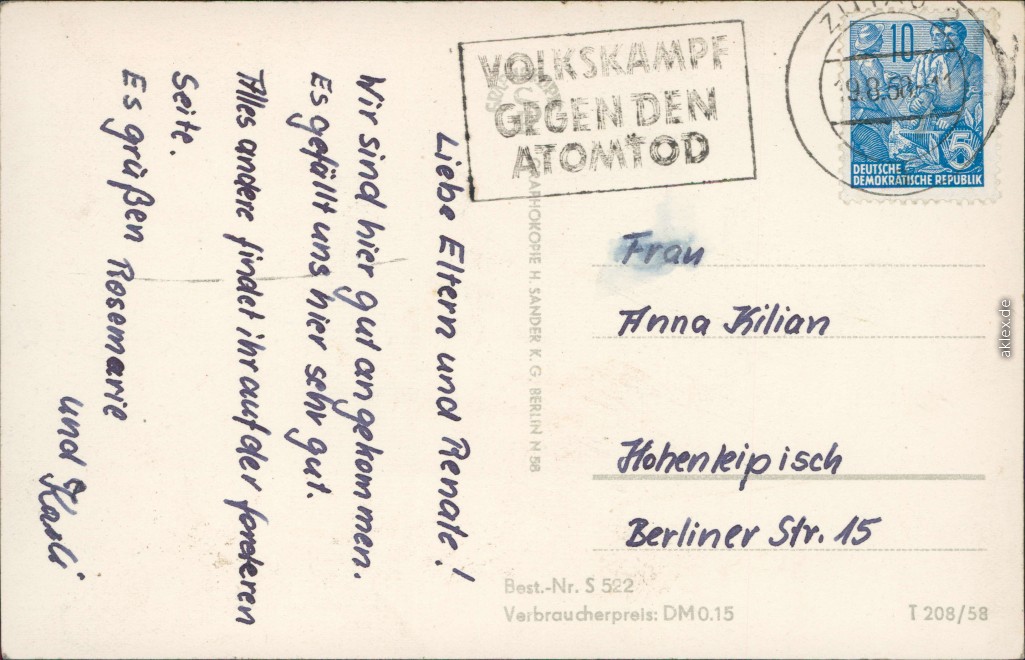 Liebe Eltern und Renate!
Wir sind hier gut angekommen.
Es gefällt uns hier sehr gut.
Alles andere findet ihr auf der forderen
Seite.
Es grüßen Rosemarie
und
VOLKSKAMPF
GEGEN DEN
ATOMTOD
10
5
DEUTSCHE
DEMOKRATISCHE REPUBLIK
GRAPHOKOPIE H. SANDER K. G. BERLIN N 58
Frau
Anna Kilian
Hohenleipisch
Berliner Str. 15
Best.-Nr. S 522
Verbraucherpreis: DM 0.15
T 208/58
aklex.de